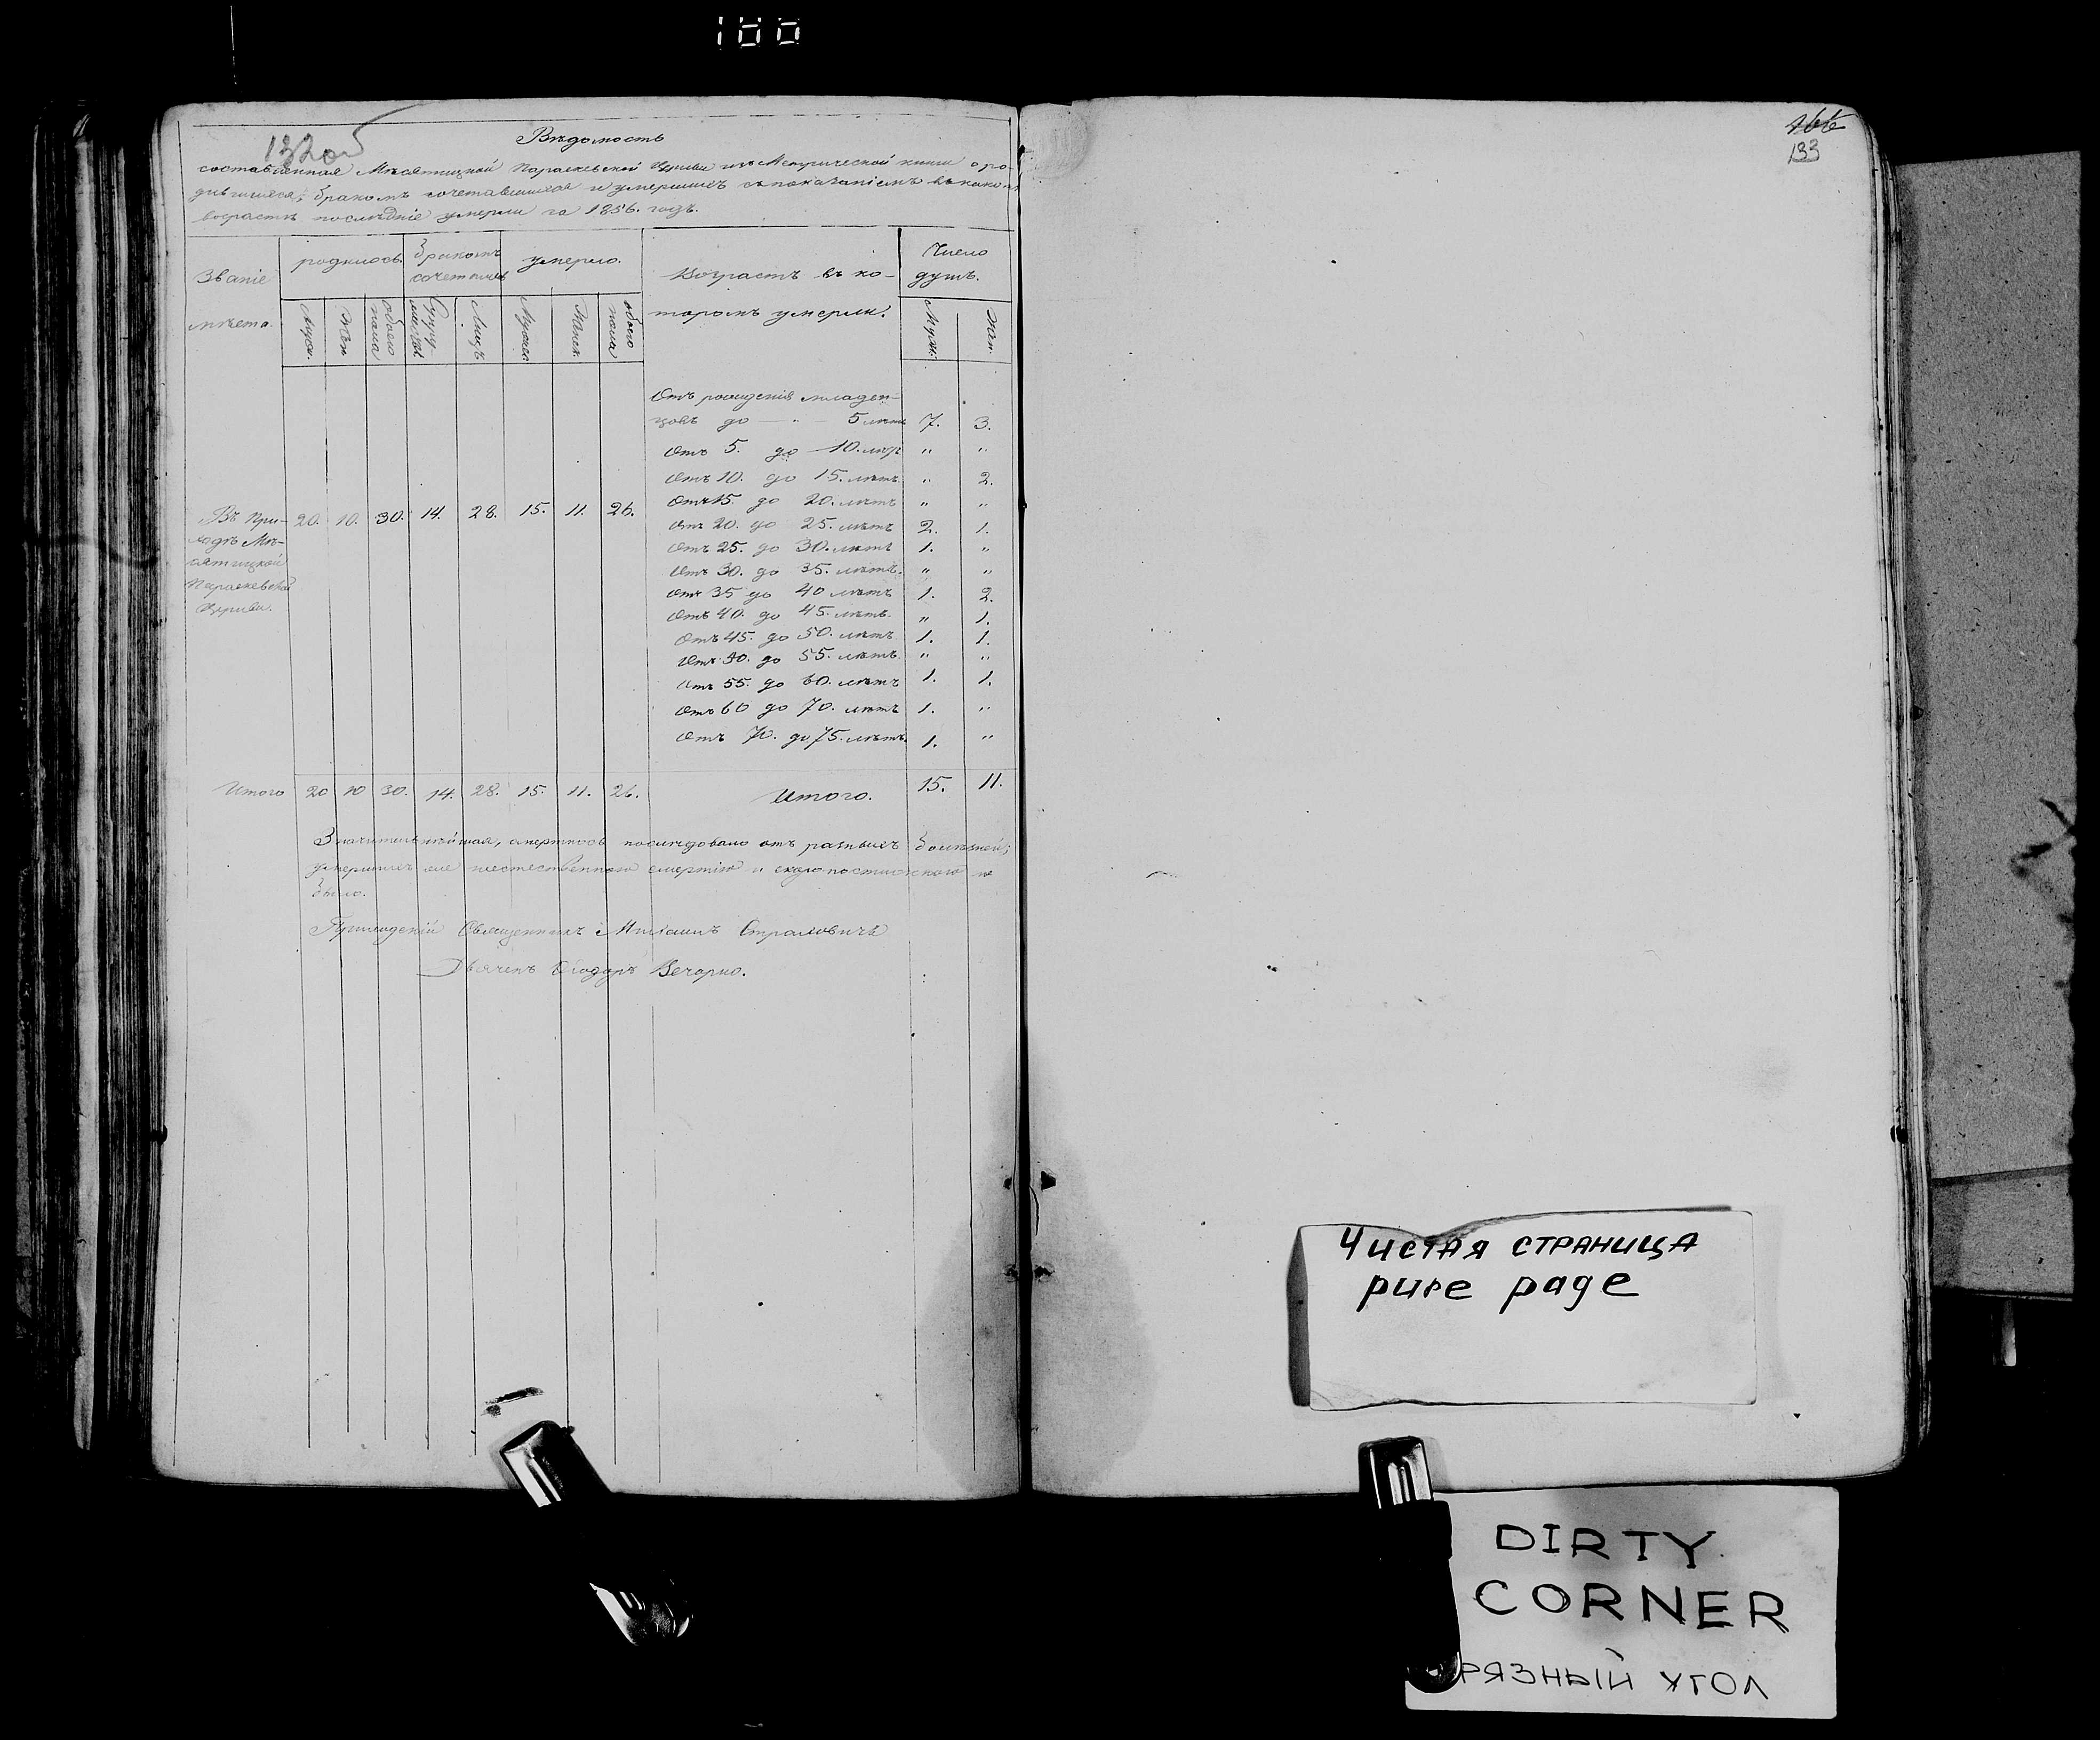 100
132об
Вѣдомость
составленная Мѣсятицкой Параскевской Церкви изъ Метрической книги о ро-
дившихся, бракомъ сочетавшихся и умершихъ съ показаніемъ въ како
возрастѣ послѣдніе умерли за 1856. годъ.
Званіе мѣста.
родилось.
бракомъ сочетались
умерло.
Возрастъ въ ко-
торомъ умерли.
Число душъ.
Мужск.
Жен
обоего пола
Лицъ
Мужск
Женск
обоего пола
Муж.
Жен.
Отъ рожденія младен-
цовъ до — 5 лѣтъ 7. 3.
Отъ 5. до 10. лѣтъ " "
Отъ 10. до 15. лѣтъ " 2.
Отъ 15. до 20. лѣтъ " "
Въ При-
ходѣ Мѣ-
сятицкой
Параскевской
Церкви.
20. 10. 30. 14. 28. 15. 11. 26.
Отъ 20. до 25. лѣтъ 2. 1.
Отъ 25. до 30. лѣтъ 1. "
Отъ 30. до 35. лѣтъ. " "
Отъ 35 до 40 лѣтъ 1. 2.
Отъ 40. до 45. лѣтъ. " 1.
Отъ 45. до 50. лѣтъ 1. 1.
Отъ 50. до 55. лѣтъ. " "
Отъ 55. до 60. лѣтъ 1. 1.
Отъ 60 до 70. лѣтъ 1. "
Отъ 70. до 75. лѣтъ. 1. "
Итого 20 10 30. 14. 28. 15. 11. 26. Итого. 15. 11.
Значительнѣйшая смертность послѣдовало отъ разныхъ болѣзней;
умершихъ же неестественною смертію и скоропостижною не
было.
Приходскій Священникъ
Дьячекъ Ѳеодоръ Вечорко.
166
133
Чистая страница
pure page
DIRTY
CORNER
РЯЗНЫЙ УГОЛ